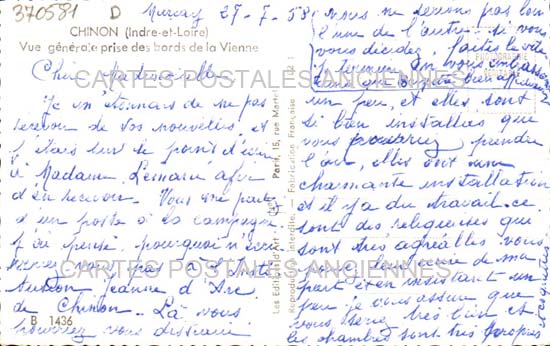 370581 D Mercay 27-7-58
CHINON (Indre-et-Loire)
Vue générale prise des bords de la Vienne
Chère Mademoiselle
Je m'étonnais de ne pas
recevoir de vos nouvelles, et
j'étais sur le point d'écrire
à Madame Lemarié afin
d'en recevoir. Vous me parlez
d'un poste à la campagne
J'ai pensé, pourquoi n'écri
vous pas à l'Insti
tution Jeanne d'Arc
de Chinon. Là vous
pourriez vous distraire
B 1436
Les Editions d'Art Paris, 15, rue Martel
Reproduction interdite. - Fabrication Française
nous ne serions pas loin
l'une de l'autre. si vous
vous décidez, faites le vite
Je vous embrasse
un peu, et elles sont
si bien installées que
vous pourriez prendre
l'air, elles ont une
charmante installation
et il y a du travail. ce
sont des religieuses que
sont très agréables vous
de ma
part et en insistant un
peu je vous assure que
vous serez très bien et
les chambres sont très propres
CARTES POSTALES ANCIENNES
CARTES POSTALES ANCIENNES